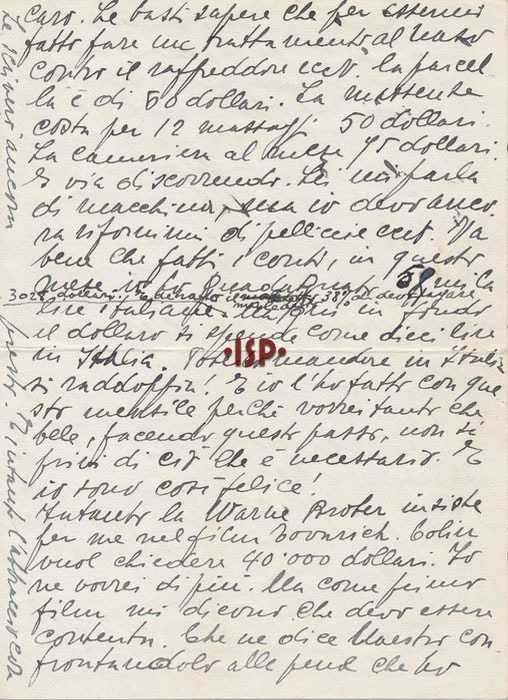 caro. Le basti sapere che per essermi
fatto fare un trattamento al naso
contro il raffreddore ecct. la parcel
la è di 50 dollari. La masseuse
costa per 12 massaggi 50 dollari.
La cameriera al mese 95 dollari.
E via discorrendo. Lei mi parla
di macchina, ma io devo anco
ra rifornirmi di pelliccie ecct. Va
bene che fatti i conti, in questo
mese io ho guadagnato 58 mila
3028 dollari. detratto il 38% da devo pagare
lire italiane. in fondo
il dollaro si spende come dieci lire
in Italia. mandare in Italia
si raddoppia! E io l'ho fatto con que
sto mensile perché vorrei tanto che
bele, facendo questo passo, non si
privi di ciò che è necessario. E
io sono così felice!
Intanto la Warne Broter insiste
per me nel film Colin
vuol chiedere 40.000 dollari. Io
ne vorrei di più. Ma come primo
film, mi dicono che devo essere
contenta. Che ne dice Maestro con
frontandolo alle pene che ho
Le scriverò ancora presto. E intanto l'abbraccio con
·ISP·